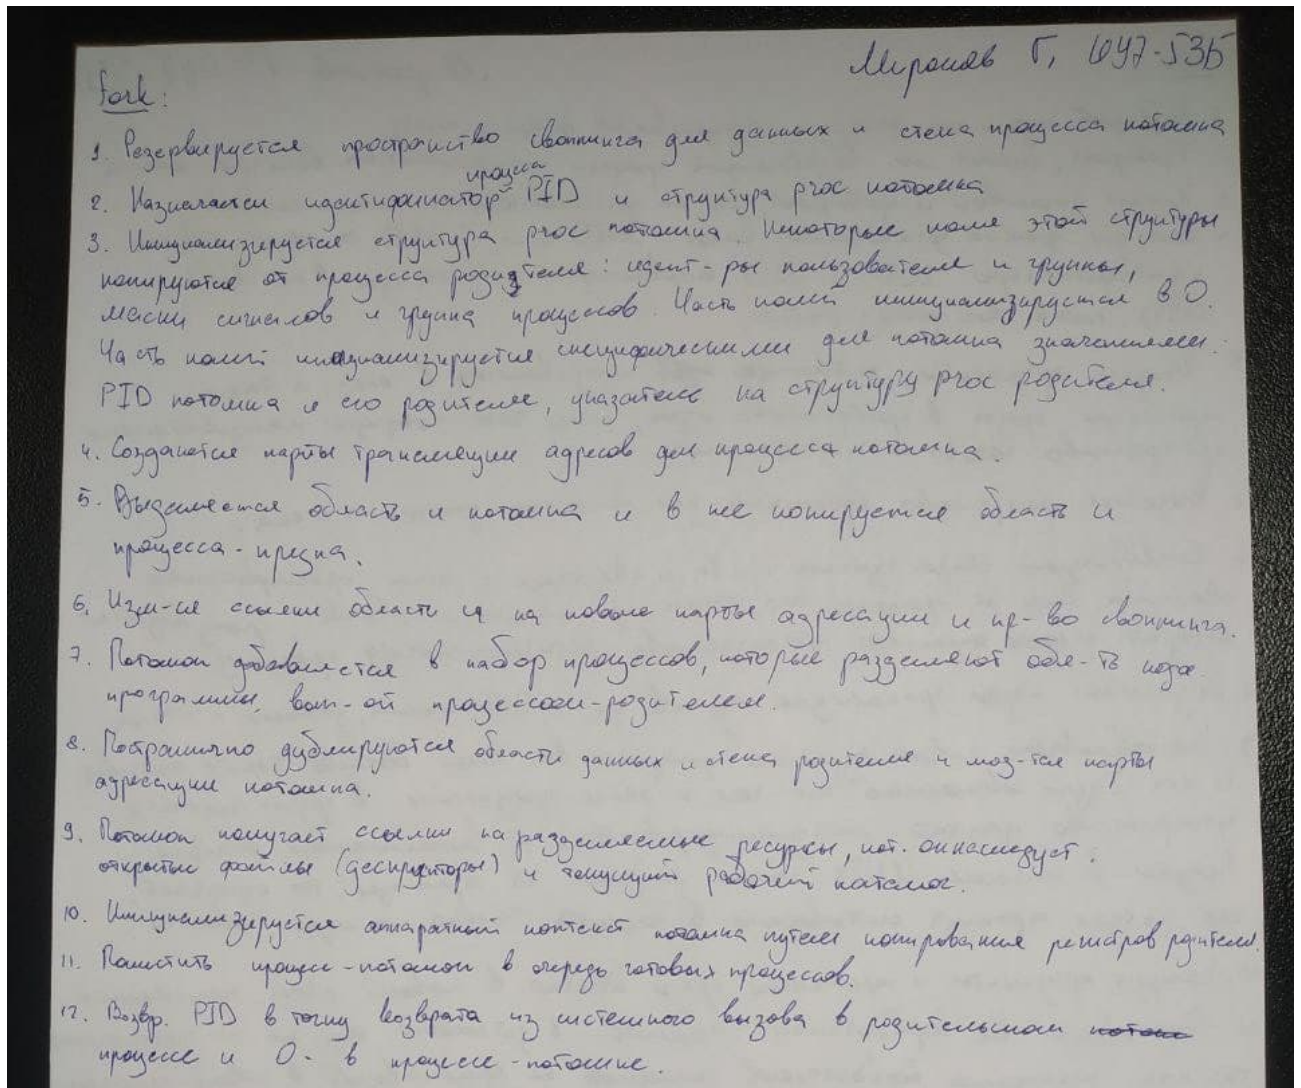 Миронов Г, ИУ7-53Б
fork:
1. Резервируется пространство свопинга для данных и стека процесса потомка
процесса
2. Назначается идентификатор PID и структура proc потомка
3. Инициализируется структура proc потомка. Некоторые поля этой структуры
копируются от процесса родителя: идент-ры пользователя и группы,
маски сигналов и группа процессов. Часть полей инициализируется в 0.
Часть полей инициализируется специфическими для потомка значениями:
PID потомка и его родителя, указатель на структуру proc родителя.
4. Создаются карты трансляции адресов для процесса потомка.
5. Выделяется область u потомка и в нее копируется область u
процесса-предка.
6. Изм-ся ссылки области u на новые карты адресации и пр-во свопинга.
7. Потомок добавляется в набор процессов, которые разделяют обл-ть кода
программы, вып-ой процессом-родителем.
8. Постранично дублируются области данных и стека родителя и мод-тся карты
адресации потомка.
9. Потомок получает ссылки на разделяемые ресурсы, кот. он наследует.
открытые файлы (дескрипторы) и текущий рабочий каталог.
10. Инициализируется аппаратный контекст потомка путем копирования регистров родителя.
11. Поместить процесс-потомок в очередь готовых процессов.
12. Возвр. PID в точку возврата из системного вызова в родительском
процессе и 0 - в процессе-потомке.